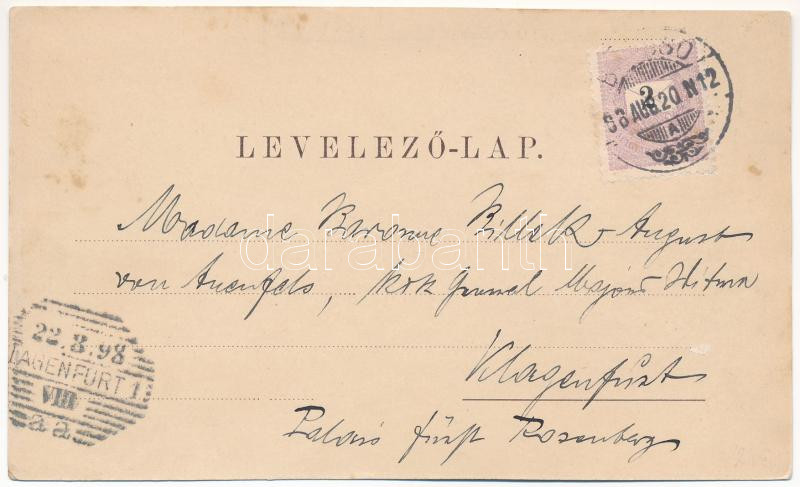 2
98 AUG. 20. N 12
A
LEVELEZŐ-LAP.
Madame Baronne Billek - August
von Auenfels, kok General Majors Witwe
Klagenfurt
Palais fürst Rosenberg
22.8.98
LAGENFURT 1
VIII
aa
darabanth